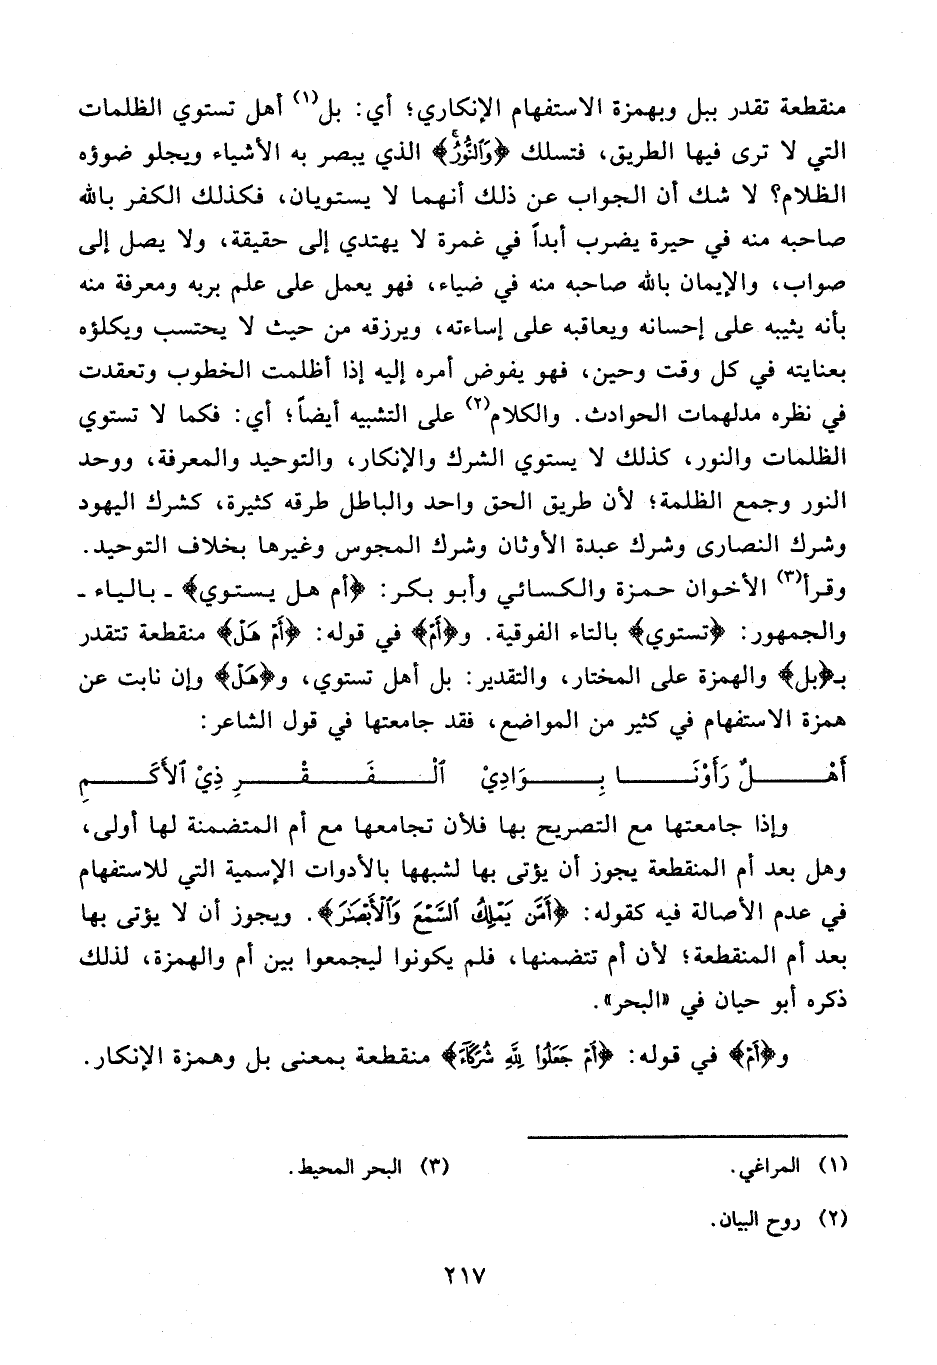 منقطعة تقدر ببل وبهمزة الاستفهام الإنكاري؛ أي: بل(١) أهل تستوي الظلمات
التي لا ترى فيها الطريق، فتسلك ﴿وَٱلنُّورُۚ﴾ الذي يبصر به الأشياء ويجلو ضوؤه
الظلام؟ لا شك أن الجواب عن ذلك أنهما لا يستويان، فكذلك الكفر بالله
صاحبه منه في حيرة يضرب أبداً في غمرة لا يهتدي إلى حقيقة، ولا يصل إلى
صواب، والإيمان بالله صاحبه منه في ضياء، فهو يعمل على علم بربه ومعرفة منه
بأنه يثيبه على إحسانه ويعاقبه على إساءته، ويرزقه من حيث لا يحتسب ويكلؤه
بعنايته في كل وقت وحين، فهو يفوض أمره إليه إذا أظلمت الخطوب وتعقدت
في نظره مدلهمات الحوادث. والكلام(٢) على التشبيه أيضاً؛ أي: فكما لا تستوي
الظلمات والنور، كذلك لا يستوي الشرك والإنكار، والتوحيد والمعرفة، ووحد
النور وجمع الظلمة؛ لأن طريق الحق واحد والباطل طرقه كثيرة، كشرك اليهود
وشرك النصارى وشرك عبدة الأوثان وشرك المجوس وغيرها بخلاف التوحيد.
وقرأ(٣) الأخوان حمزة والكسائي وأبو بكر: ﴿أم هل يستوي﴾ ـ بالياء ـ
والجمهور: ﴿تستوي﴾ بالتاء الفوقية. و﴿أَمْ﴾ في قوله: ﴿أَمْ هَلْ﴾ منقطعة تتقدر
بـ﴿بل﴾ والهمزة على المختار، والتقدير: بل أهل تستوي، و﴿هَلْ﴾ وإن نابت عن
همزة الاستفهام في كثير من المواضع، فقد جامعتها في قول الشاعر:
أَهْلٌ رَأَوْنَا بِوَادِيْ ٱلْفَقْرِ ذِيْ ٱلأَكَمِ
وإذا جامعتها مع التصريح بها فلأن تجامعها مع أم المتضمنة لها أولى،
وهل بعد أم المنقطعة يجوز أن يؤتى بها لشبهها بالأدوات الإسمية التي للاستفهام
في عدم الأصالة فيه كقوله: ﴿أَمَّن يَمْلِكُ ٱلسَّمْعَ وَٱلْأَبْصَٰرَ﴾. ويجوز أن لا يؤتى بها
بعد أم المنقطعة؛ لأن أم تتضمنها، فلم يكونوا ليجمعوا بين أم والهمزة، لذلك
ذكره أبو حيان في «البحر».
و﴿أَمْ﴾ في قوله: ﴿أَمْ جَعَلُوا۟ لِلَّهِ شُرَكَآءَ﴾ منقطعة بمعنى بل وهمزة الإنكار.
(١) المراغي.
(٢) روح البيان.
(٣) البحر المحيط.
٢١٧